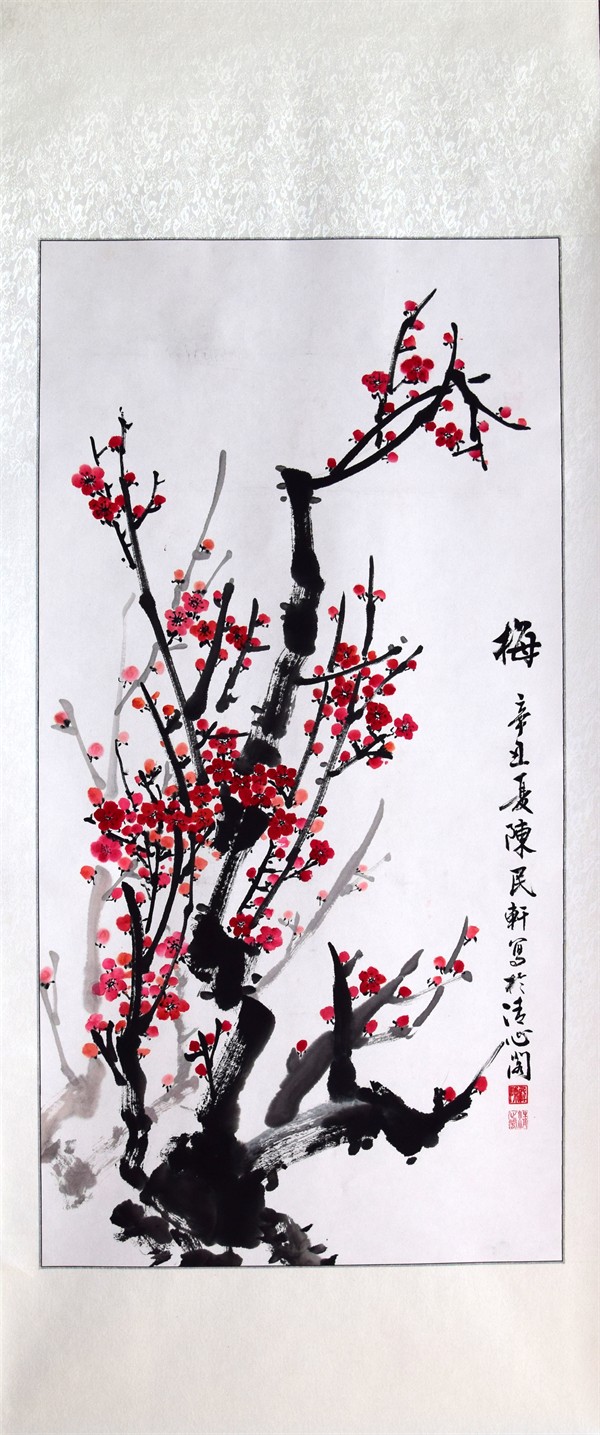 梅
辛丑夏陳民軒写於清心阁